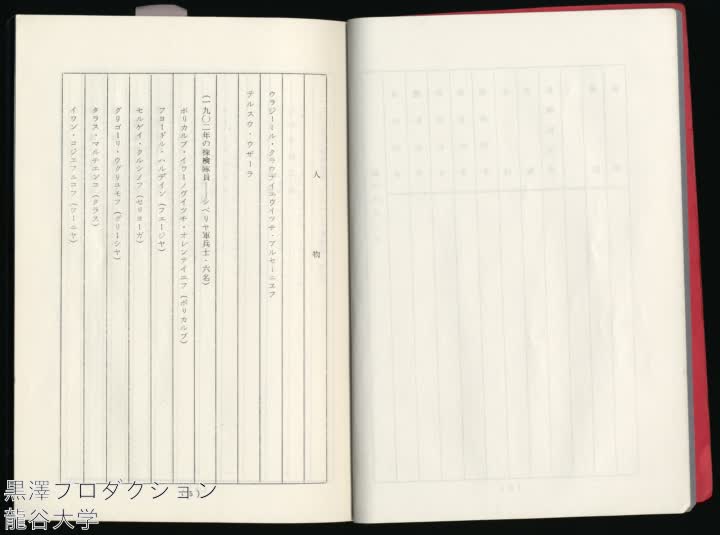 人物
ウラジーミル・クラウデイエヴイツチ・アルセーニエフ
デルスウ・ウザーラ
（一九〇二年の探検隊員――シベリヤ軍兵士・六名）
ポリカルプ・イワーノヴイツチ・オレンテイエフ（ポリカルプ）
フヨードル・ハルデイン（フエージヤ）
セルゲイ・クルシノフ（セリヨーガ）
グリゴーリ・ウグリユモフ（グリーシヤ）
タラス・マルチエンコ（タラス）
イワン・コジエフニコフ（ワーニヤ）
黒澤プロダクション
龍谷大学